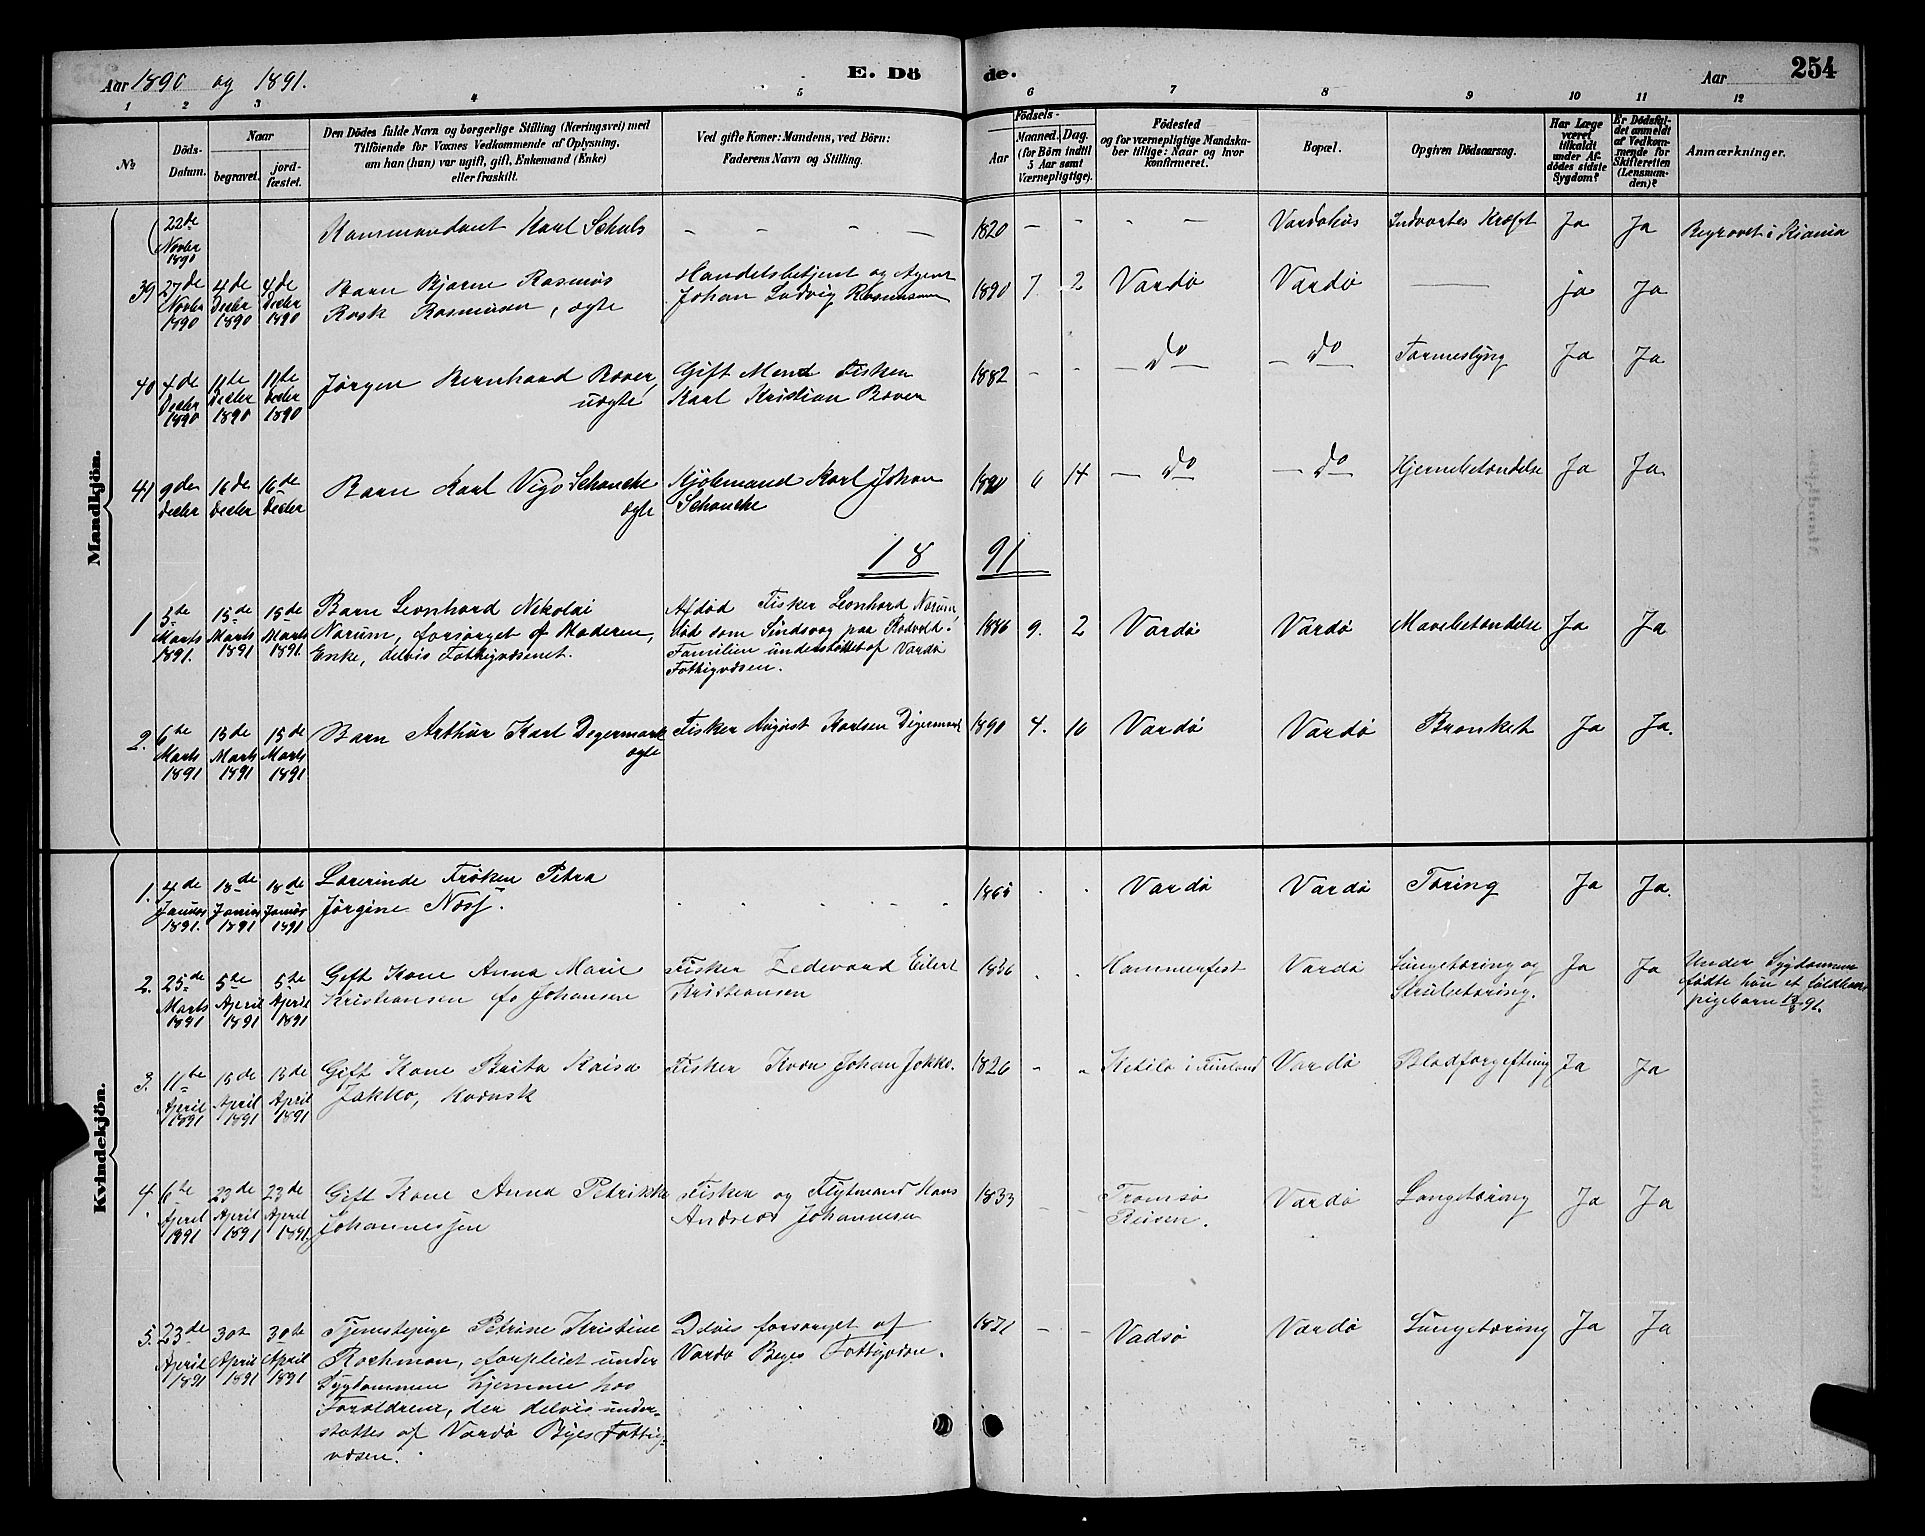 Aar 1890 og 1891.
E. Dö de.
Aar
254
1 2 3 4 5 6 7 8 9 10 11 12
№
Döds-
Datum.
Naar
begravet.
jord-
fæstet.
Den Dödes fulde Navn og borgerlige Stilling (Næringsvei) med
Tilföiende for Voxnes Vedkommende af Oplysning,
om han (hun) var ugift, gift, Enkemand (Enke)
eller fraskilt.
Ved gifte Koner: Mandens, ved Börn:
Faderens Navn og Stilling.
Födsels-
Aar
Maaned. Dag.
(for Börn indtil
5 Aar samt
Værnepligtige).
Födested
og for værnepligtige Mandska-
ber tillige: Naar og hvor
konfirmeret.
Bopæl.
Opgiven Dödsaarsag.
Har Læge
været
tilkaldt
under Af-
dödes sidste
Sygdom?
Er Dödsfal-
det anmeldt
af Vedkom-
mende for
Skifteretten
(Lensman-
den)?
Anmærkninger.
Mandkjön.
22de Novbr 1890
Kommandant Karl Schuls
1820
Vardøhus
Indvortes Kræft
Ja
Ja
Begravet i Kiania
39
27de Novbr 1890
4de Decbr 1890
4de Decbr 1890
Barn Bjarne Rasmus
Rask Rasmussen, ægte
Handelsbetjent og Agent
Johan Ludvig Rasmussen
1890 7. 2
Vardö
Vardö
ja
Ja
40
4de Decbr 1890
11te Decbr 1890
11te Decbr 1890
Jørgen Bernhard Bover,
uægte
Gift Mand Fisker
Karl Kristian Bover
1882
do
do
Tarmeslyng
Ja
Ja
41
9de Decbr
16de Decbr
16de Decbr
Barn Karl Vigo Schancke
ægte
Kjøbmand Karl Johan
Schancke
1890 11 14
do
do
Hjernebetændelse
Ja
Ja
1891
1
5te Marts 1891.
15de Marts 1891
15de Marts 1891
Barn Leonhard Nikolai
Narum, forsørget af Moderen,
Enke, delvis Fattigvæsenet.
Afdød Fisker Leonhard Narum,
død som Sindssvag paa Rotvold.
Familien understöttet af Vardö
Fattigvæsen.
1886 9. 2
Vardö
Vardö
Mavebetændelse
Ja
Ja
2.
6te Marts 1891
15de Marts 1891
15de Marts 1891
Barn Arthur Karl Degermark
ægte
Fisker August Karlsen Degermark
1890 4. 10
Vardö
Vardö
Bronket
Ja
Ja.
Kvindekjön.
1.
4de Januar 1891.
18de Januar 1891
18de Januar 1891
Lærerinde Frøken Petra
Jørgine Næss.
1865
Vardö
Vardö
Tæring
Ja
Ja.
2.
25de Marts 1891
5te April 1891
5te April 1891
Gift Kone Anna Marie
Kristiansen fø Johansen
Fisker Zedevard Eilert
Kristiansen
1856
Hammerfest
Vardö
Lungetæring og
Strubetæring.
Ja
Ja
Under Sygdommen
fødte hun et fuldbaar
pigebarn 91.
3.
11te April 1891
18de April 1891
18de April 1891
Gift Kone Brita Kaisa
Jakko, kvænsk
Fisker Kvæn Johan Jakko.
1826
Ketilö i Finland
Vardö
Blodforgiftning
Ja
Ja
4.
6te April 1891
23de April 1891
23de April 1891
Gift Kone Anna Petrikke
Johannessen
Fisker og Flytmand Hans
Andreas Johannesen
1833
Tromsø
Reisen.
Vardö
Lungetæring
Ja
Ja
5.
23de April 1891
30te April 1891
30te April 1891
Tjenestepige Petrine Kristine
Rochman, forpleiet under
Sygdommen hjemme hos
Forældrene, der delvis under-
støttes af Vardö Byes Fattig-
væsen.
Delvis forsørget af
Vardö Byes Fattigvæsen.
1871
Vadsö
Vardö
Lungetæring
Ja
Ja